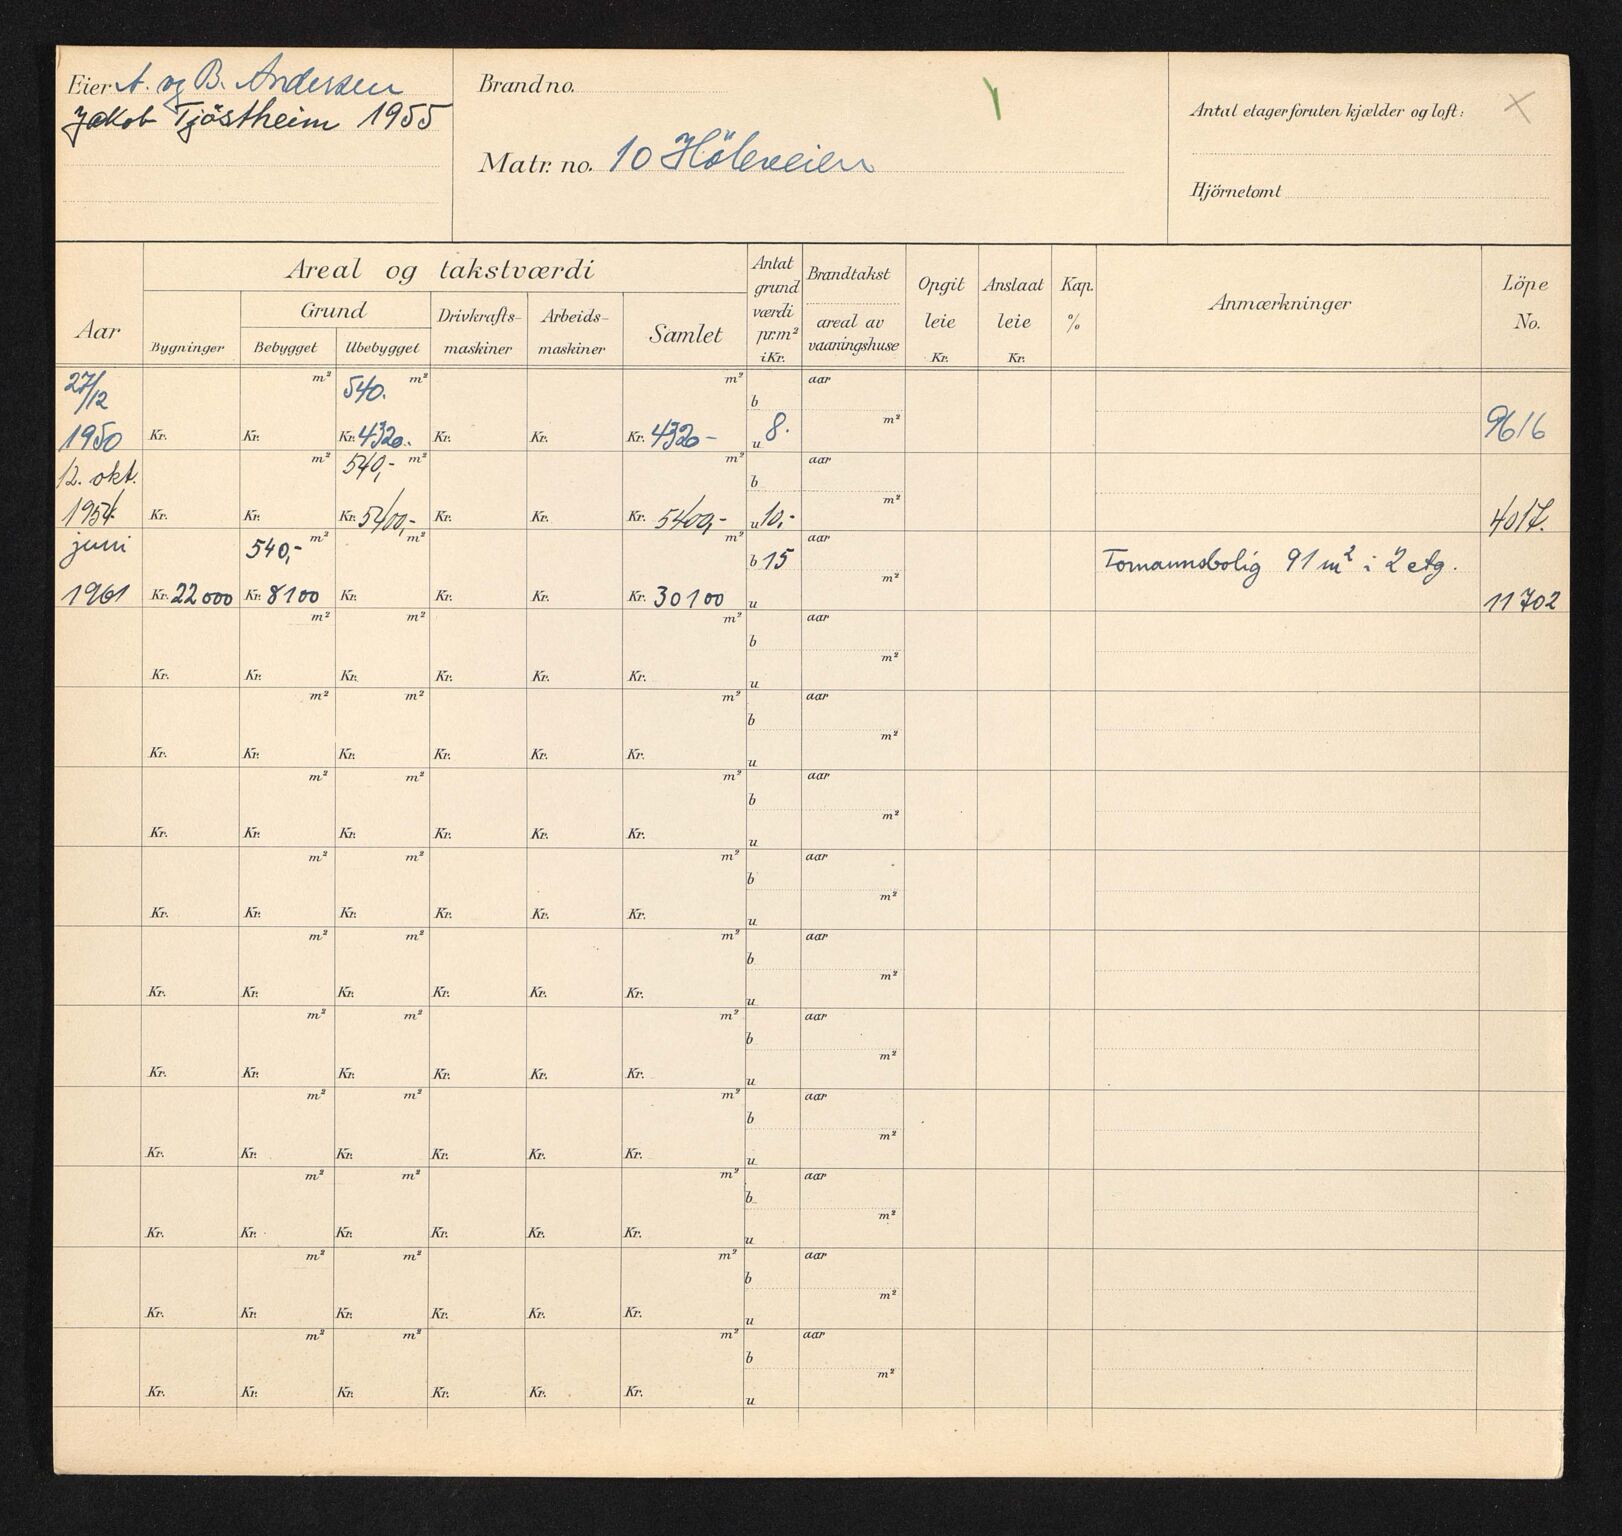 Eier A. og B. Andersen
Jakob Tjöstheim 1955
Brandno.
Matr. no. 10 Höleveien
Antal etager foruten kjælder og loft: X
Hjörnetomt
Aar
Areal og takstværdi
Bygninger
Grund
Bebygget
Ubebygget
Drivkrafts-
maskiner
Arbeids-
maskiner
Samlet
Antat
grund
værdi
pr. m²
i Kr.
Brandtakst
areal av
vaaningshuse
Opgit
leie
Kr.
Anslaat
leie
Kr.
Kap.
%
Anmærkninger
Löpe
No.
27/12 m² 540. m² m² b aar
1950 Kr. Kr. Kr. 4320.- Kr. Kr. Kr. 4320- u 8. m² 9616
12. okt. m² 540,- m² m² b aar
1954. Kr. Kr. Kr. 5400,- Kr. Kr. Kr. 5400,- u 10,- m² 4017.
juni 540,- m² m² m² b 15 aar Tomannsbolig 91 m² i 2 etg.
1961 Kr. 22000 Kr. 8100 Kr. Kr. Kr. Kr. 30100 u m² 11702
m² m² m² b aar
Kr. Kr. Kr. Kr. Kr. Kr. u m²
m² m² m² b aar
Kr. Kr. Kr. Kr. Kr. Kr. u m²
m² m² m² b aar
Kr. Kr. Kr. Kr. Kr. Kr. u m²
m² m² m² b aar
Kr. Kr. Kr. Kr. Kr. Kr. u m²
m² m² m² b aar
Kr. Kr. Kr. Kr. Kr. Kr. u m²
m² m² m² b aar
Kr. Kr. Kr. Kr. Kr. Kr. u m²
m² m² m² b aar
Kr. Kr. Kr. Kr. Kr. Kr. u m²
m² m² m² b aar
Kr. Kr. Kr. Kr. Kr. Kr. u m²
m² m² m² b aar
Kr. Kr. Kr. Kr. Kr. Kr. u m²
m² m² m² b aar
Kr. Kr. Kr. Kr. Kr. Kr. u m²